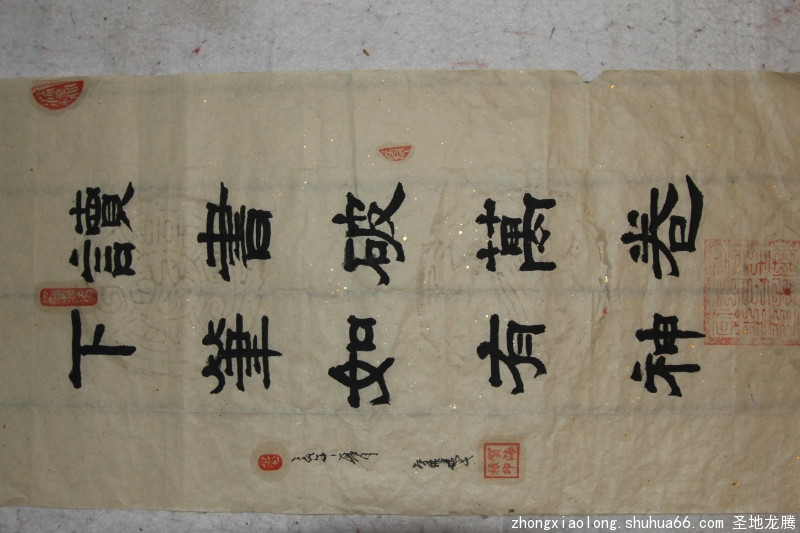 讀書破萬卷
下筆如有神
zhongxiaolong.shuhua66.com 圣地龙腾